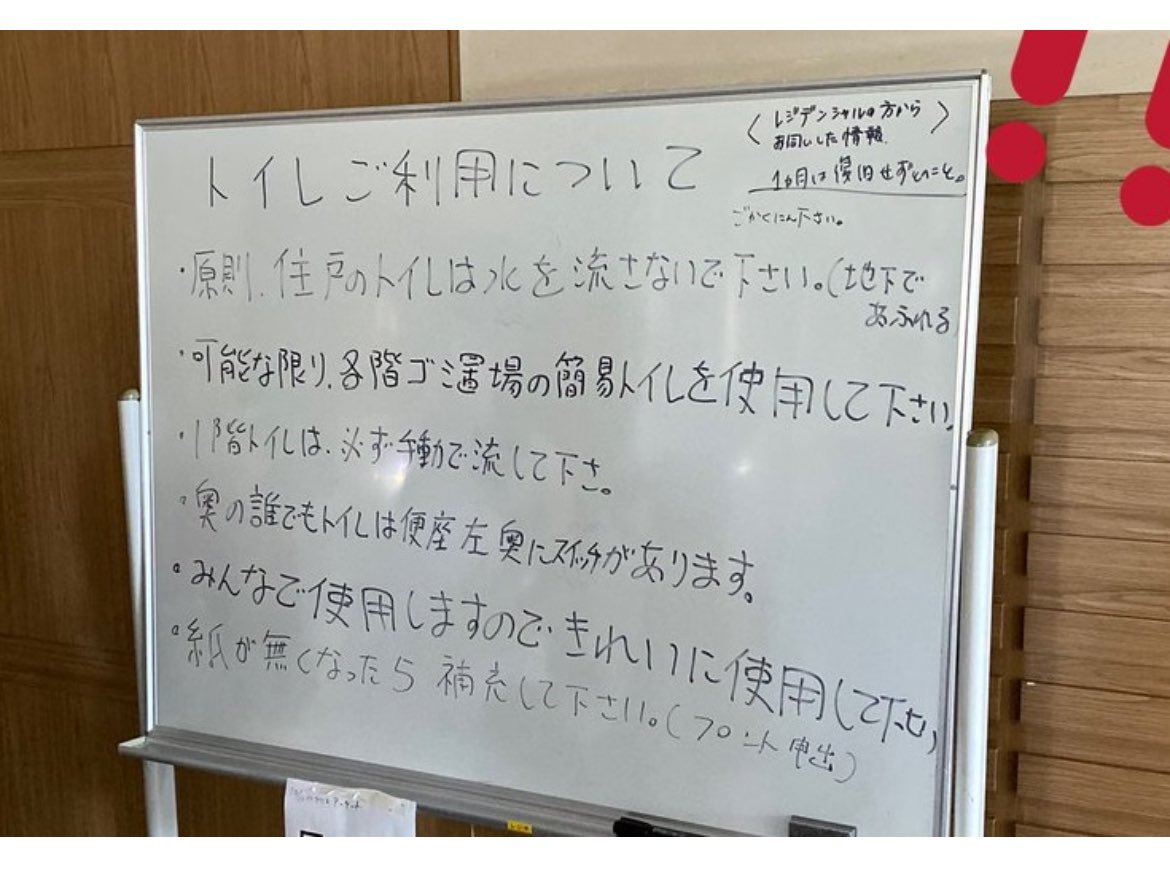 トイレご利用について
〈レジデンシャルの方から
お伺いした情報〉
1ヵ月は復旧せずとのこと。
ごかくにん下さい。
・原則、住戸のトイレは水を流さないで下さい。(地下で
あふれる)
・可能な限り、各階ゴミ置場の簡易トイレを使用して下さい。
・1階トイレは、必ず手動で流して下さ。
・奥の誰でもトイレは便座左奥にスイッチがあります。
・みんなで使用しますのできれいに使用して下さい
・紙が無くなったら補充して下さい。(フロント申出)